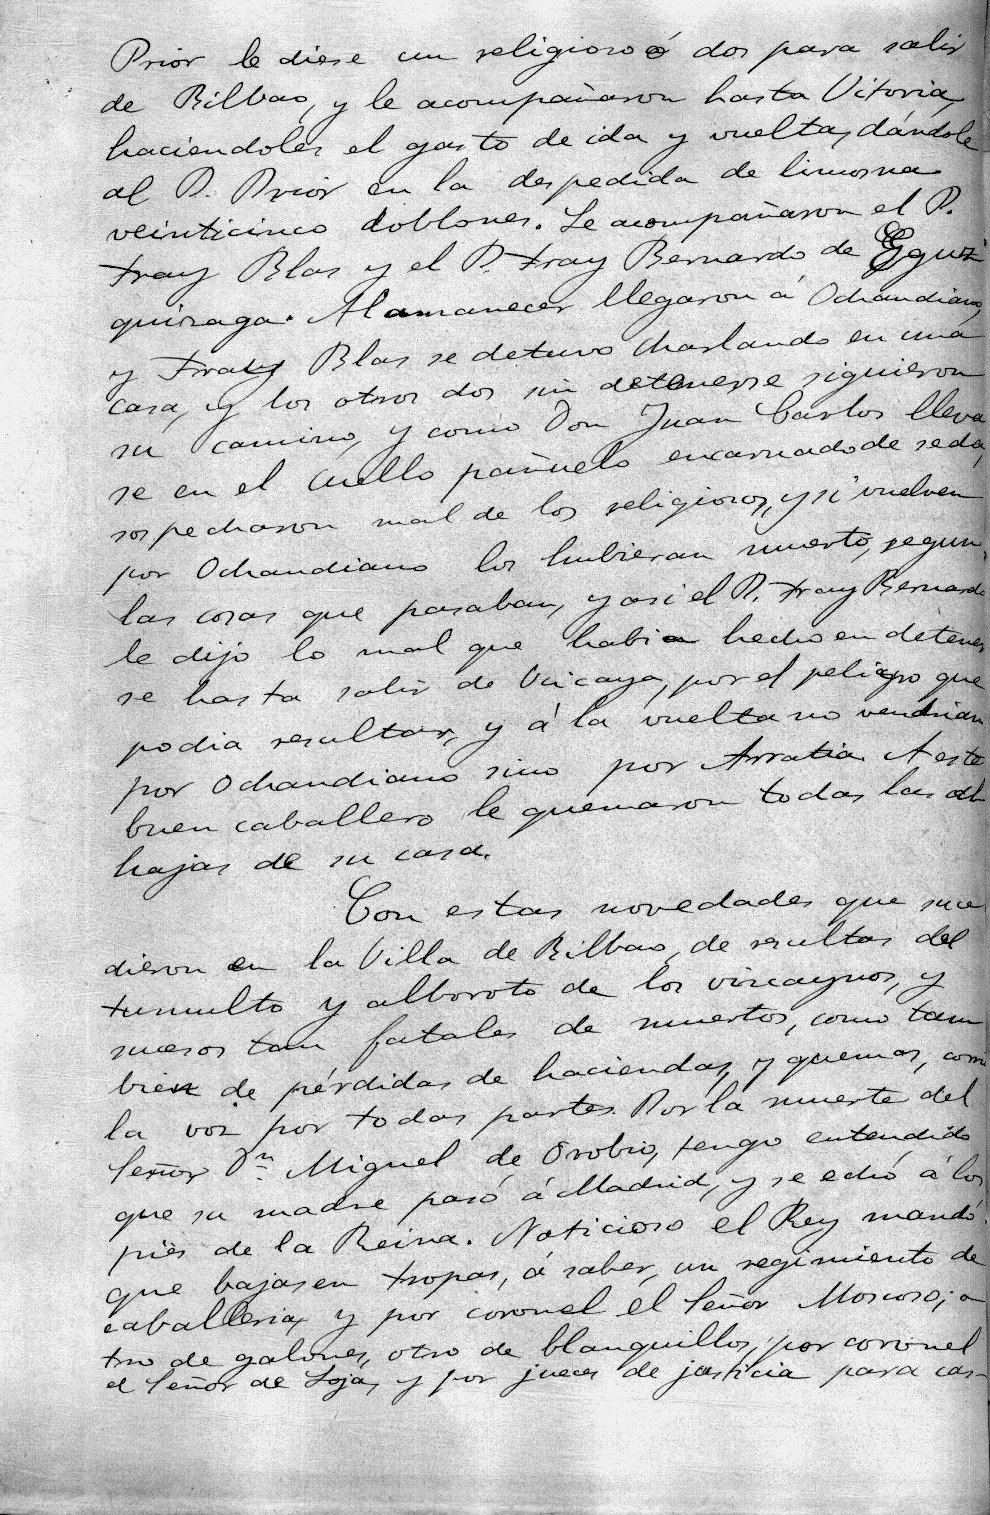 Prior le diese un religioso ó dos para salir
de Bilbao, y le acompañaron hasta Vitoria,
haciendoles el gasto de ida y vuelta, dándole
al P. Prior en la despedida de limosna
veinticinco doblones. Le acompañaron el P.
Fray Blas y el P. Fray Bernardo de Eguz
quizaga. Al amanecer llegaron á Ochandiano,
y Fray Blas se detuvo charlando en una
casa, y los otros dos sin detenerse siguieron
su camino, y como Don Juan Carlos lleva
se en el cuello pañuelo encarnado de seda,
sospecharon mal de los religiosos, y si vuelven
por Ochandiano los hubieran muerto, segun
las cosas que pasaban, y asi el P. Fray Bernardo
le dijo lo mal que habia hecho en detener
se hasta salir de Vizcaya, por el peligro que
podia resultar, y á la vuelta no vendrian
por Ochandiano sino por Arratia. A este
buen caballero le quemaron todas las al
hajas de su casa.
Con estas novedades que suce
dieron en la Villa de Bilbao, de resultas del
tumulto y alboroto de los vizcaynos, y
sucesos tan fatales de muertos, como tam
bien de pérdidas de haciendas, y quemas, corrió
la voz por todas partes. Por la muerte del
Señor Dn. Miguel de Orobio, tengo entendido
que su madre pasó á Madrid, y se echó á los
piés de la Reina. Noticioso el Rey mandó
que bajasen tropas, á saber, un regimiento de
caballeria, y por coronel el Señor Moscoso; o
tro de galones, otro de blanquillos, por coronel
el Señor de Loja, y por jueces de justicia para cas-